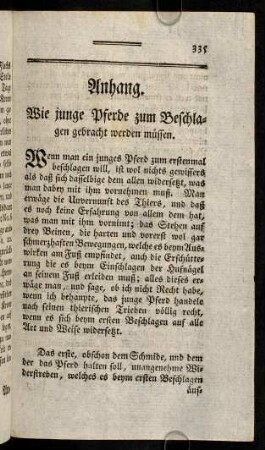 335
Anhang.
Wie junge Pferde zum Beschla-
gen gebracht werden müssen.
Wenn man ein junges Pferd zum erstenmal
beschlagen will, ist wol nichts gewissers
als daß sich dasselbige dem allen widersetzt, was
man dabey mit ihm vornehmen muß. Man
erwäge die Unvernunft des Thiers, und daß
es noch keine Erfahrung von allem dem hat,
was man mit ihm vornimt; das Stehen auf
drey Beinen, die harten und vorerst wol gar
schmerzhaften Bewegungen, welche es beym Aus-
wirken am Fuß empfindet, auch die Erschütte-
rung die es beym Einschlagen der Hufnägel
an seinem Fuß erleiden muß; alles dieses er-
wäge man, und sage, ob ich nicht Recht habe,
wenn ich behaupte, das junge Pferd handele
nach seinen thierischen Trieben völlig recht,
wenn es sich beym ersten Beschlagen auf alle
Art und Weise widersetzt.
Das erste, obschon dem Schmide, und dem
der das Pferd halten soll, unangenehme Wi-
derstreben, welches es beym ersten Beschlagen
äus-